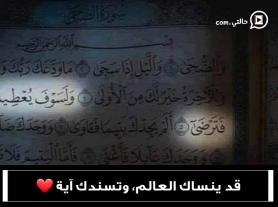 حالتي.com
سورة الضحى
بسم الله الرحمن الرحيم
وَالضُّحَىٰ ١ وَاللَّيْلِ إِذَا سَجَىٰ ٢ مَا وَدَّعَكَ رَبُّكَ وَ
وَلَلْآخِرَةُ خَيْرٌ لَّكَ مِنَ الْأُولَىٰ ٤ وَلَسَوْفَ يُعْطِي
فَتَرْضَىٰ ٥ أَلَمْ يَجِدْكَ يَتِيمًا فَآوَىٰ ٦ وَوَجَدَكَ ضَا
وَوَجَدَكَ عَائِلًا فَأَغْنَىٰ ٨ فَأَمَّا الْيَتِيمَ فَلَا
قد ينساك العالم، وتسندك آية ❤️